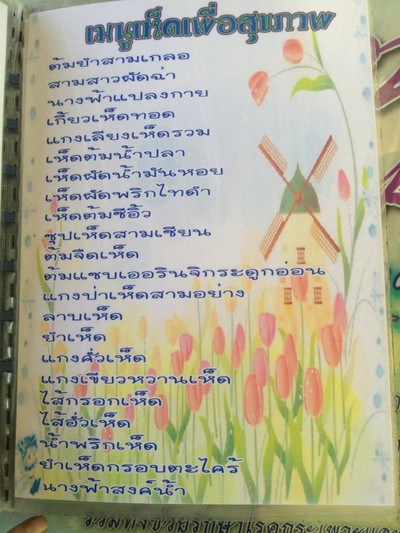 เมนูเห็ดเพื่อสุขภาพ
ต้มยำสามเกลอ
สามสาวผัดฉ่า
นางฟ้าแปลงกาย
เกี้ยวเห็ดทอด
แกงเลียงเห็ดรวม
เห็ดต้มน้ำปลา
เห็ดผัดน้ำมันหอย
เห็ดผัดพริกไทดำ
เห็ดต้มซีอิ้ว
ซุปเห็ดสามเซียน
ต้มจืดเห็ด
ต้มแซบเออรินจิกระดูกอ่อน
แกงป่าเห็ดสามอย่าง
ลาบเห็ด
ยำเห็ด
แกงคั่วเห็ด
แกงเขียวหวานเห็ด
ไส้กรอกเห็ด
ไส้อั่วเห็ด
น้ำพริกเห็ด
ยำเห็ดกรอบตะไคร้
นางฟ้าสงค์น้ำ